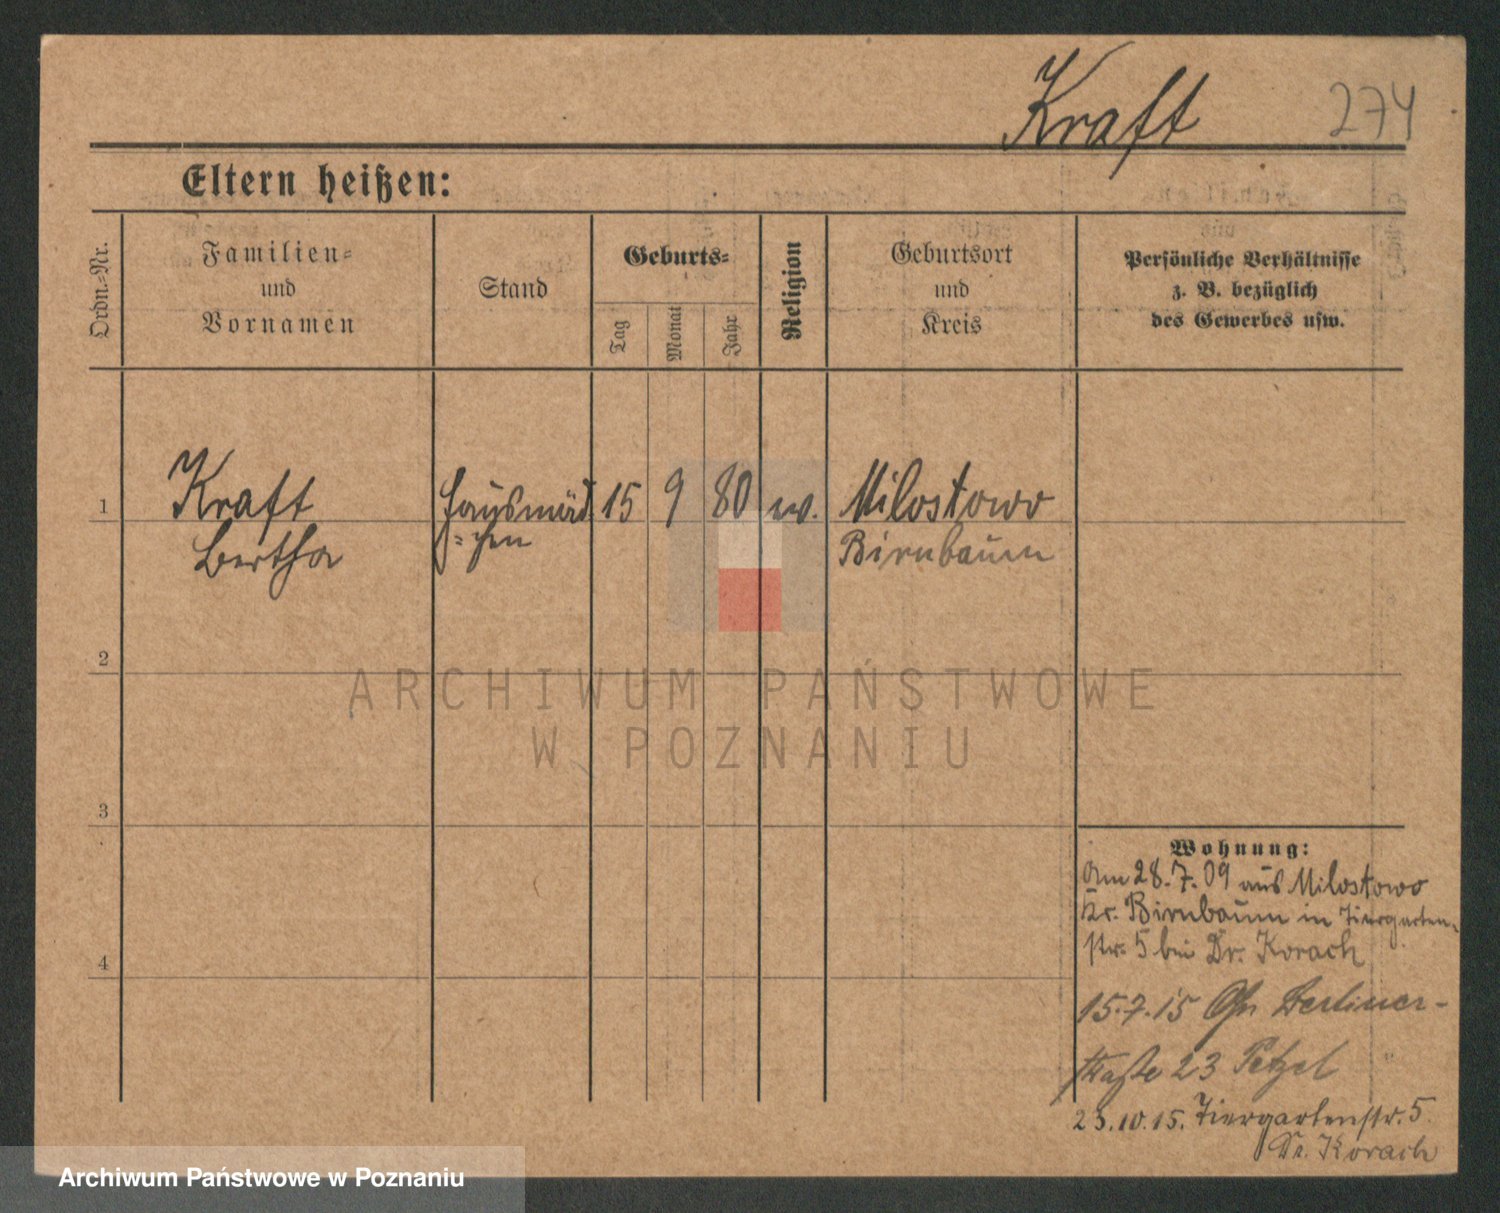 Kraft 274
Eltern heißen:
Ordn.-Nr.
Familien-
und
Vornamen
Stand
Geburts-
Tag
Monat
Jahr
Religion
Geburtsort
und
Kreis
Persönliche Verhältnisse
z. B. bezüglich
des Gewerbes usw.
1
Kraft
Bertha
Hausmäd
=chen
15
9
80
ev.
Milostowo
Birnbaum
2
3
4
Wohnung:
Am 28.7.09 aus Milostowo
Kr. Birnbaum in Tiergarten-
str. 5 bei Dr. Korach
15.7.15 Berliner-
straße 23 Petzel
23.10.15. Tiergartenstr. 5
Dr. Korach
ARCHIWUM PAŃSTWOWE
W POZNANIU
Archiwum Państwowe w Poznaniu